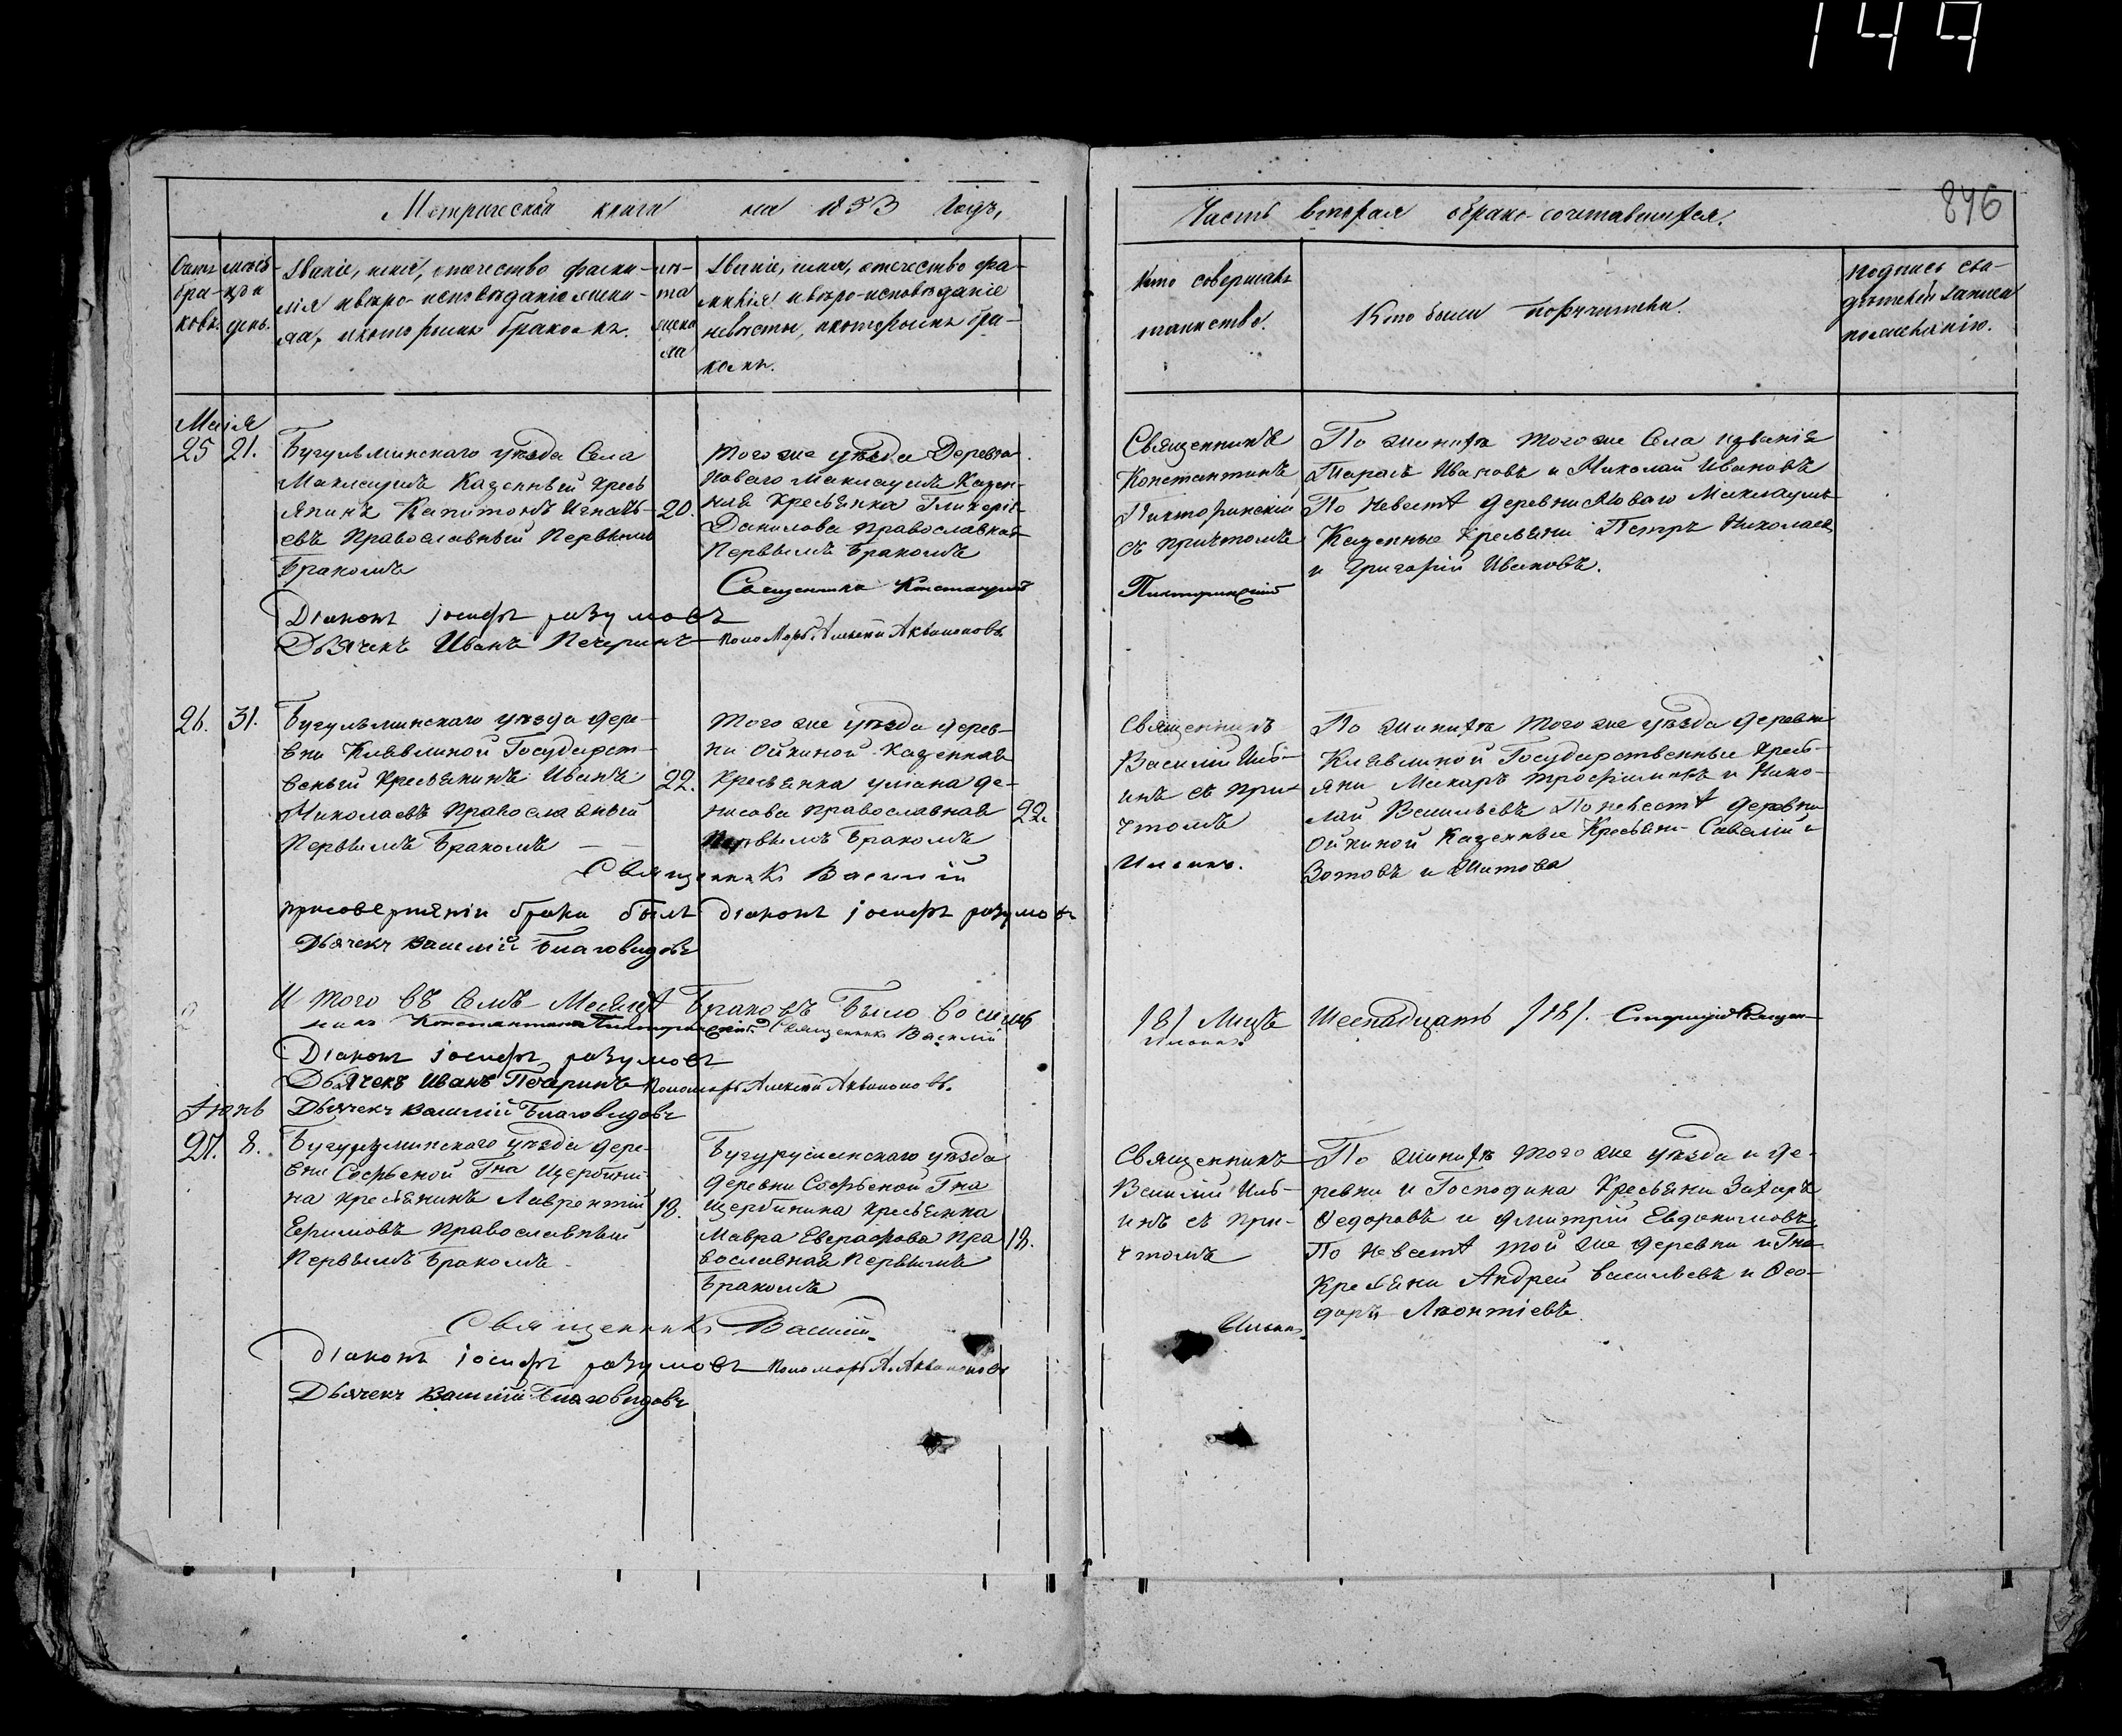 149
Метрической книги на 1853 Годъ,
Часть вторая о бракосочетавшихся.
846
Счетъ бра-ковъ.
месяцъ и день.
Званіе, имя, отечество, фами-
лія и веро-исповеданіе жени-
ха, и которымъ бракомъ.
ле-
та
жени
ха
Званіе, имя, отечество фа-
милія и веро-исповеданіе
невесты, и которымъ бра-
комъ.
Кто совершалъ
таинство.
Кто были поручители.
Подпись сви-
детелей записи
по желанію.
Маія
25 21.
Бугульминскаго уезда Села
Маклаушъ Казенный Кресть
янинъ Капитонъ Игнать-
евъ Православный Первымъ
Бракомъ
20.
Того же уезда Деревни
Новаго Маклаушъ Казен-
ная Крестьянка Гликерія
Данилова Православная
Первымъ Бракомъ
Священникъ Константинъ
Священникъ
Константинъ
Пикторинскій
съ причтомъ
Пикторинскій
По женихе того же Села званія
Тарасъ Ивановъ и Николай Ивановъ
По Невесте деревни Новаго Маклаушъ
Казенные Крестьяни Петръ Николаевъ
и Григорій Ивановъ.
Діаконъ Іосифъ Разумовъ
Дьячекъ Иванъ Печеринъ Пономарь Алексей Аквилоновъ
26. 31.
Бугульминскаго уезда дере-
вни Клявлиной Государст-
венный Крестьянинъ Иванъ
Николаевъ Православный
Первымъ Бракомъ
22.
Того же уезда дерев-
ни Ойкиной Казенная
Крестьянка Уліана Де-
нисова Православная
Первымъ Бракомъ
22.
Священникъ Василій
Священникъ
Василій Иль-
инъ съ при-
чтомъ
Ильинъ.
По женихе того же уезда деревни
Клявлиной Государственные Кресть-
яни Макаръ Трофимовъ и Нико-
лай Васильевъ По невесте деревни
Ойкиной Казенные Крестьяни Савелій
Зотовъ и
при совершеніи брака былъ діаконъ Іосифъ Разумовъ
Дьячекъ Василій Благовидовъ
И того въ Семъ Месяце Браковъ Было восемь /8/ Лицъ Шеснадцать /16/. Старшій Священ-
никъ Константинъ Пикторинскій Священникъ Василій Ильинъ.
Діаконъ Іосифъ Разумовъ
Дьячекъ Иванъ Печеринъ Пономарь Алексей Аквилоновъ.
Дьячекъ Василій Благовидовъ
Іюнь
27. 8.
Бугульминскаго уезда дере-
вни Софьеной Гна Щербини-
на крестьянинъ Лаврентій
Ефимовъ Православный
Первымъ Бракомъ
18.
Бугурусланскаго уезда
деревни Софьеной Гна
Щербинина крестьянка
Мавра Евграфова Пра
вославная Первымъ
Бракомъ
18.
Священникъ
Василій Иль-
инъ съ при-
чтомъ
Ильинъ.
По женихе того же уезда и де-
ревни и Господина Крестьяни Захаръ
Федоровъ и Дмитрій Евдокимовъ
По Невесте той же деревни и Гна
Крестьяни Андрей Васильевъ и Фео-
доръ Леонтіевъ.
Священникъ Василій
Діаконъ Іосифъ Разумовъ Пономарь А. Аквилоновъ
Дьячекъ Василій Благовидовъ